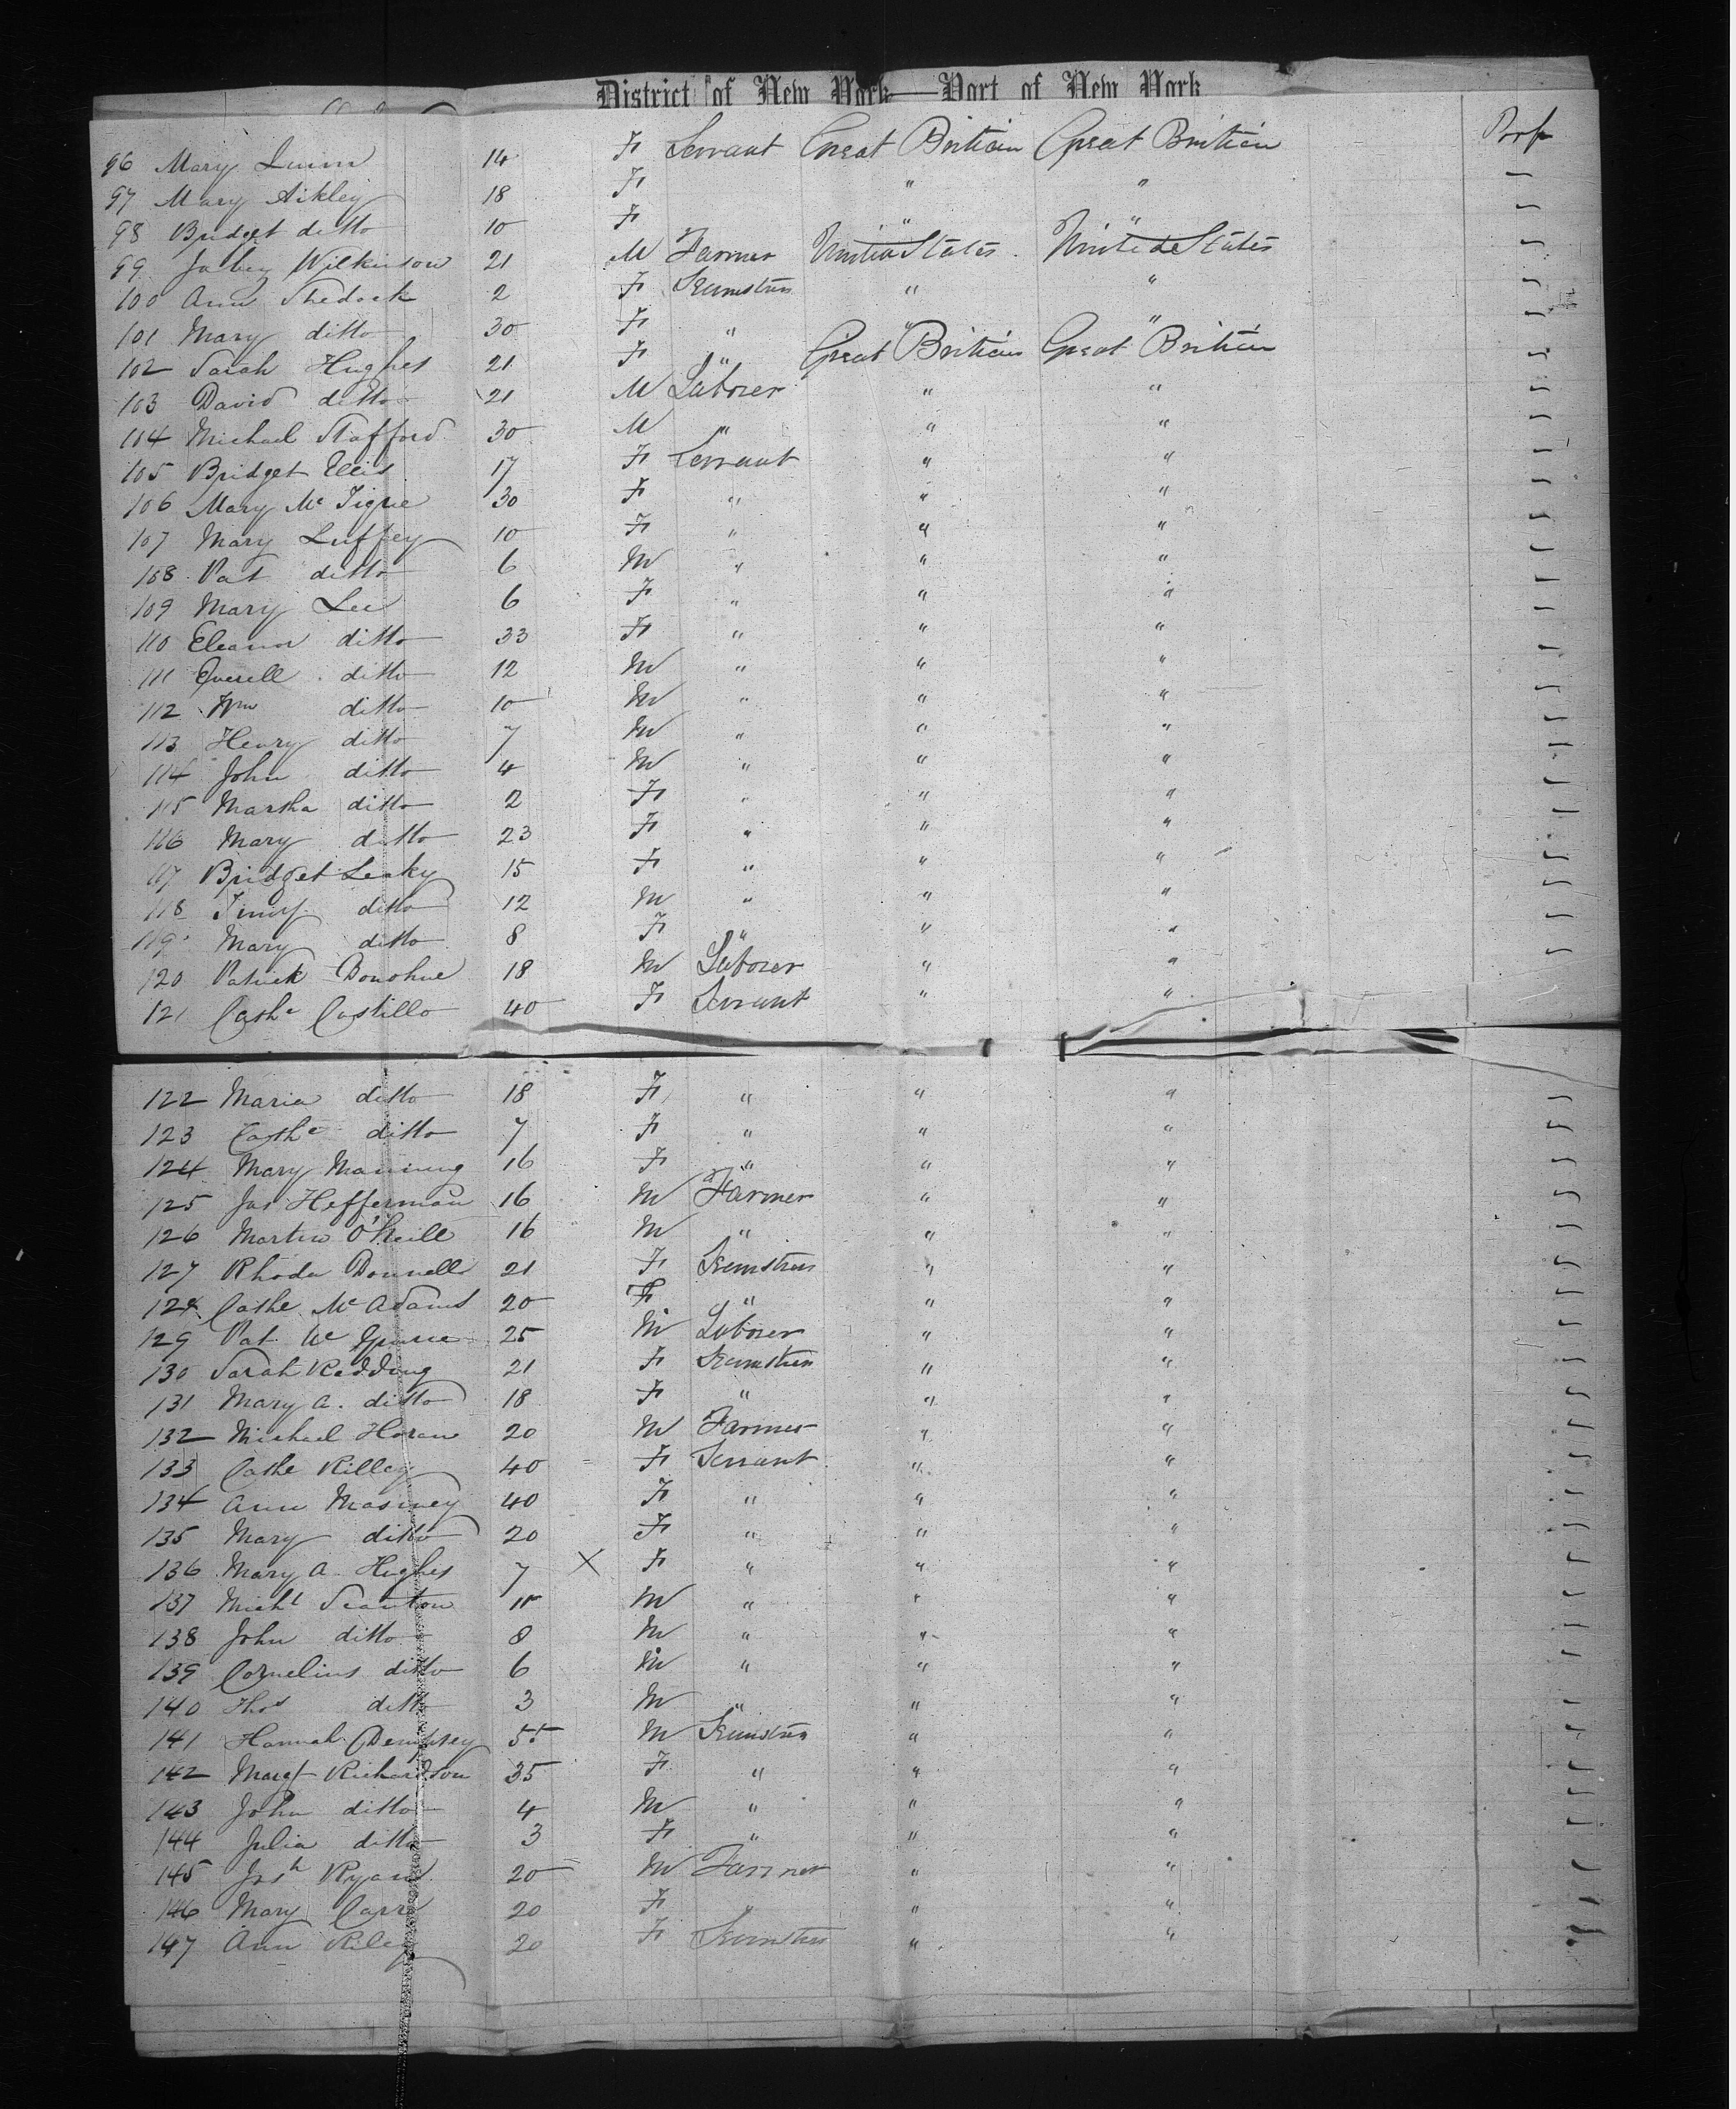 District of New York—Port of New York
96 Mary Quinn 14 F Servant Great Britian Great Britian
97 Mary Aikley 18 F " "
98 Bridget ditto 10 F " "
99 Wilkinson 21 M Farmer United States United States
100 Ann Shedock 2 F Seamstress " "
101 Mary ditto 30 F " " "
102 Sarah Hughes 21 F " Great Britian Great Britian
103 David ditto 21 M Laborer " "
104 Michael Stafford 30 M " " "
105 Bridget Ellis 17 F Servant " "
106 Mary Mc Tigue 30 F " " "
107 Mary Luffey 10 F " " "
108 Pat ditto 6 M " " "
109 Mary Lee 6 F " " "
110 Eleanor ditto 33 F " " "
111 Everell ditto 12 M " " "
112 Wm ditto 10 M " " "
113 Henry ditto 7 M " " "
114 John ditto 4 M " " "
115 Martha ditto 2 F " " "
116 Mary ditto 23 F " " "
117 Bridget Leaky 15 F " " "
118 ditto 12 M " " "
119 Mary ditto 8 F " " "
120 Patrick Donohue 18 M Laborer " "
121 Cathe Costillo 40 F Servant " "
122 Maria ditto 18 F " " "
123 Cathe ditto 7 F " " "
124 Mary Manning 16 F " " "
125 Jas Hefferman 16 M Farmer " "
126 Martin O'Neill 16 M " " "
127 Rhoda Donnell 21 F Seamstress " "
128 Cathe Mc Adams 20 F " " "
129 Pat Mc 25 M Laborer " "
130 Sarah Redding 21 F Seamstress " "
131 Mary A. ditto 18 F " " "
132 Michael Horan 20 M Farmer " "
133 Cathe Rilley 40 F Servant " "
134 Ann Masiney 40 F " " "
135 Mary ditto 20 F " " "
136 Mary A Hughes 7 X F " " "
137 Michl Scanton 11 M " " "
138 John ditto 8 M " " "
139 Cornelius ditto 6 M " " "
140 Thos ditto 3 M " " "
141 Hannah Dempsey 55 M Seamstress " "
142 Margt Richardson 35 F " " "
143 John ditto 4 M " " "
144 Julia ditto 3 F " " "
145 Josh Ryan 20 M Farmer " "
146 Mary Carr 20 F " " "
147 Ann Riley 20 F Seamstress " "